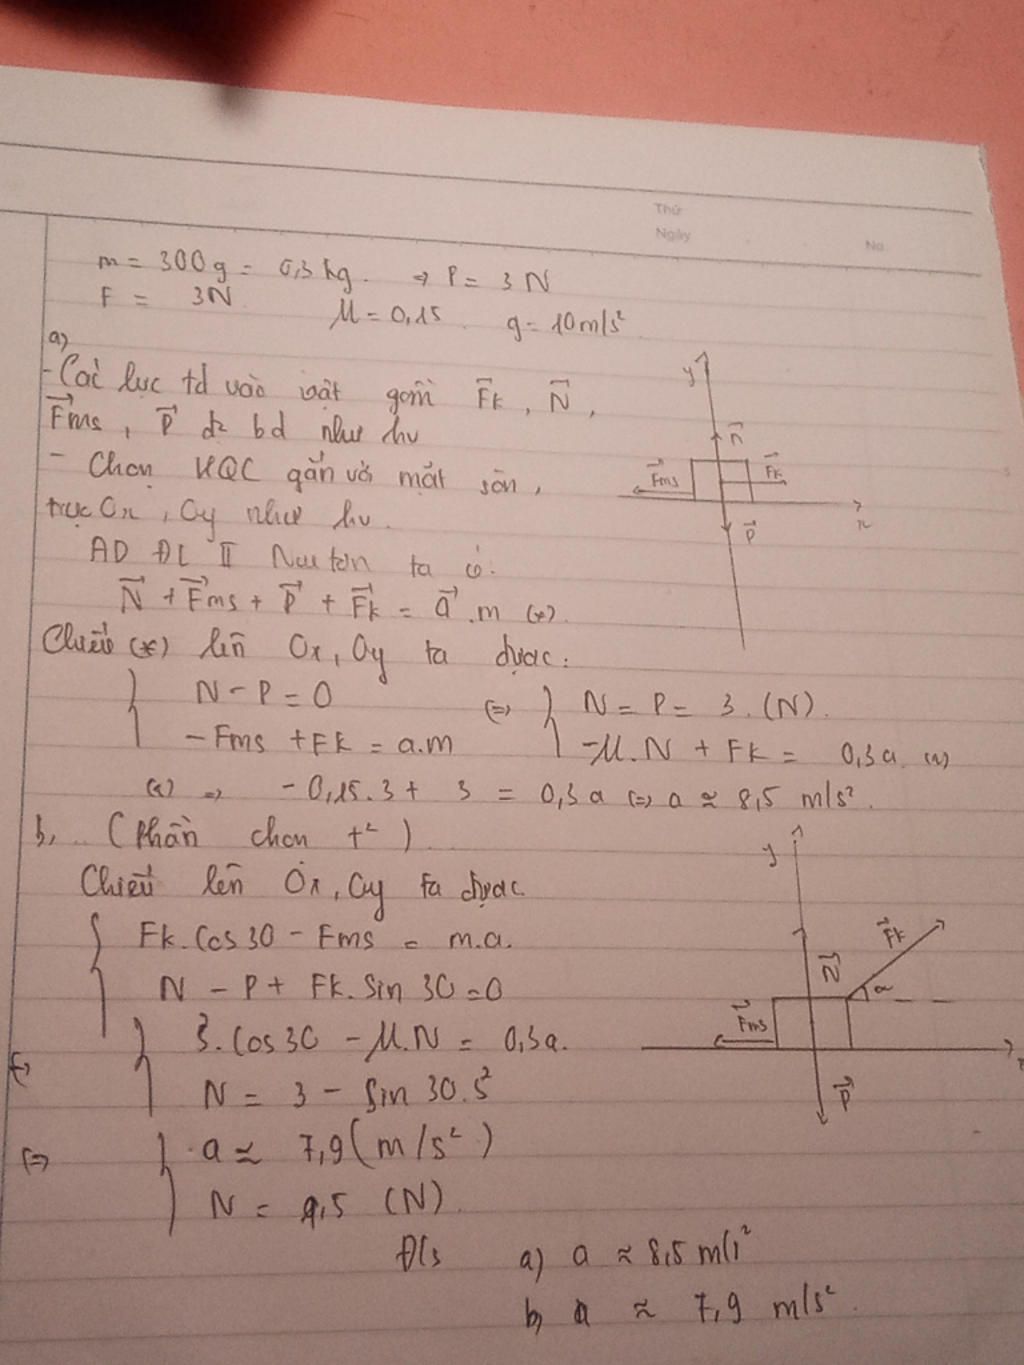 Thứ
Ngày
No.
m = 300g = 0,3 kg. ⇒ P = 3 N
F = 3N. μ = 0,15. g = 10 m/s²
a)
- Các lực td vào vật gồm F⃗k, N⃗,
F⃗ms, P⃗ đc bd như hv
- Chọn HQC gắn với mặt sàn,
trục Ox, Oy như hv.
AD ĐL II Newton ta có:
N⃗ + F⃗ms + P⃗ + F⃗k = a⃗.m (*)
Chiếu (*) lên Ox, Oy ta được:
N - P = 0 (=) N = P = 3.(N).
- Fms + Fk = a.m -μ.N + Fk = 0,3a (1)
(1) ⇒ -0,15.3 + 3 = 0,3a (=) a ≈ 8,5 m/s².
b, (Phần chọn t²)
Chiếu lên Ox, Oy ta được
Fk.Cos30 - Fms = m.a.
N - P + Fk.Sin 30 = 0
3.Cos30 - μ.N = 0,3a.
(=) N = 3 - Sin 30.3
(=) a ≈ 7,9 (m/s²)
N = 1,5 (N).
Đ/s a) a ≈ 8,5 m/s²
b, a ≈ 7,9 m/s².
y
N⃗
F⃗ms
F⃗k
x
P⃗
y
F⃗k
N⃗
α
F⃗ms
x
P⃗